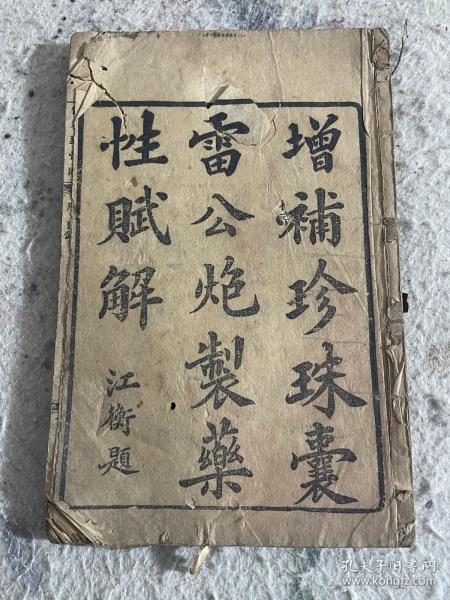 增補珍珠囊
雷公炮製藥
性賦解
江衡題
孔夫子旧书网
www.kongfz.com